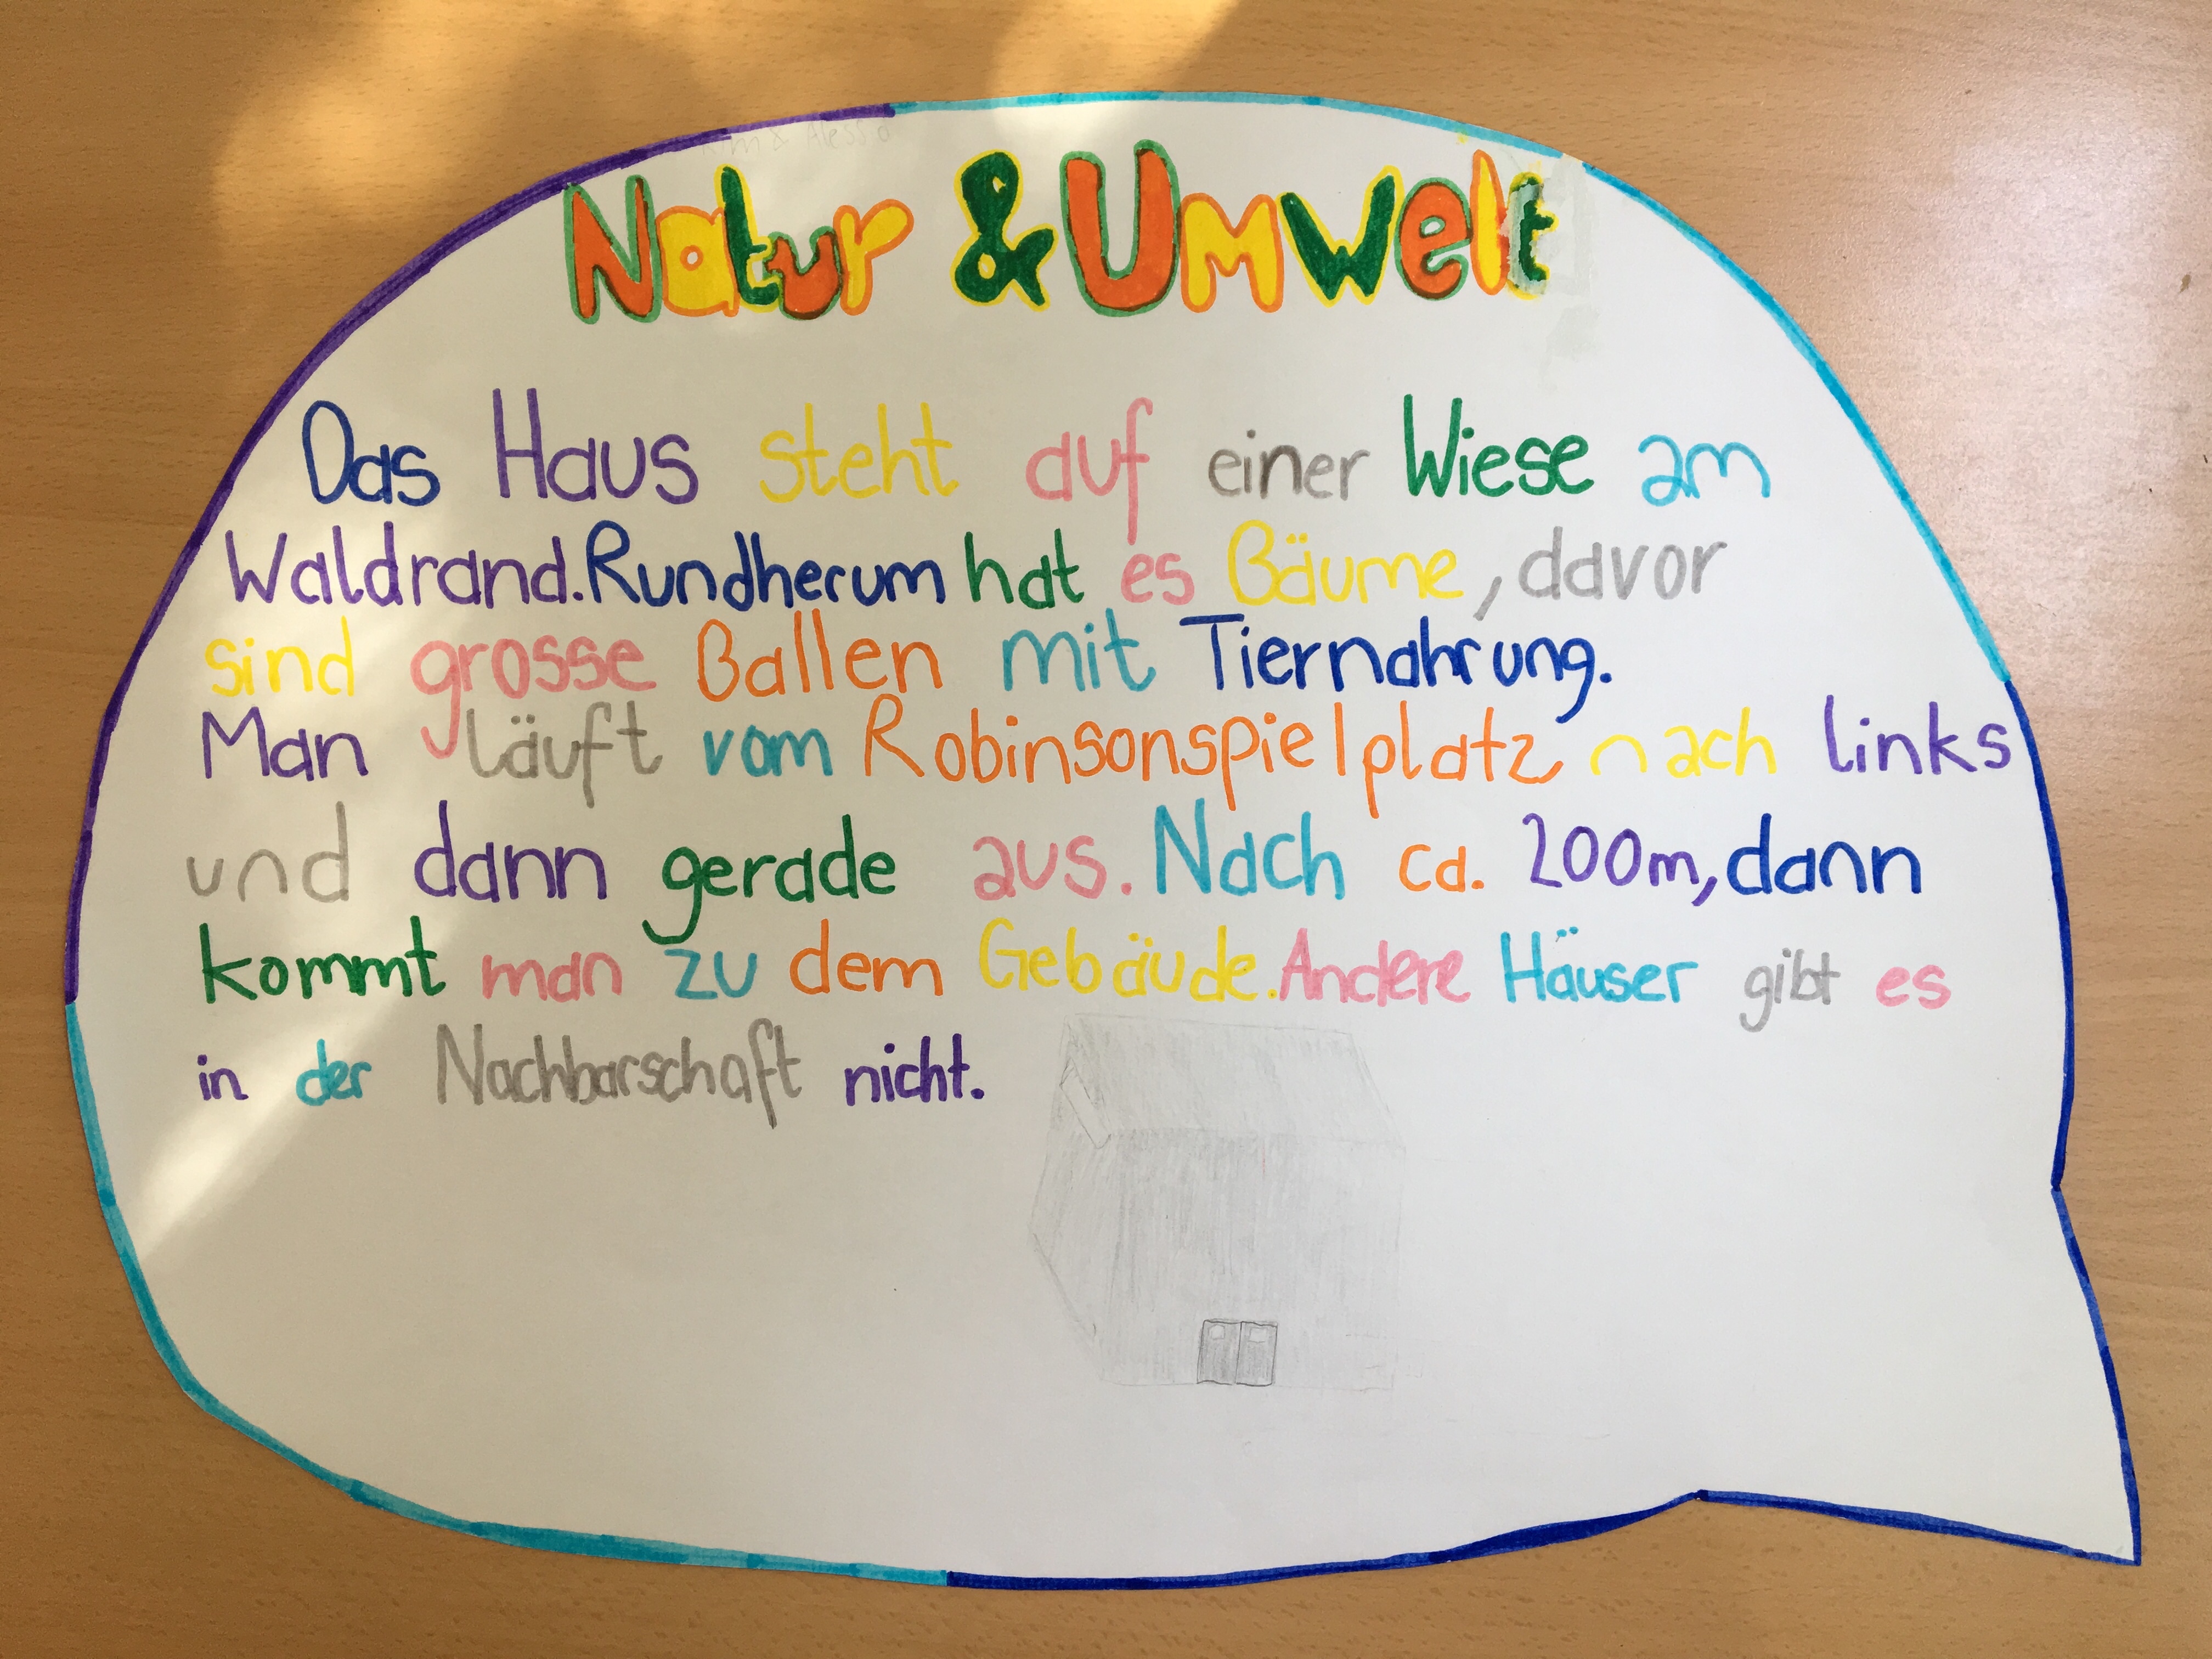 Natur & Umwelt
Das Haus steht auf einer Wiese am
Waldrand. Rundherum hat es Bäume, davor
sind grosse Ballen mit Tiernahrung.
Man läuft vom Robinsonspielplatz nach links
und dann gerade aus. Nach ca. 200m, dann
kommt man zu dem Gebäude. Andere Häuser gibt es
in der Nachbarschaft nicht.